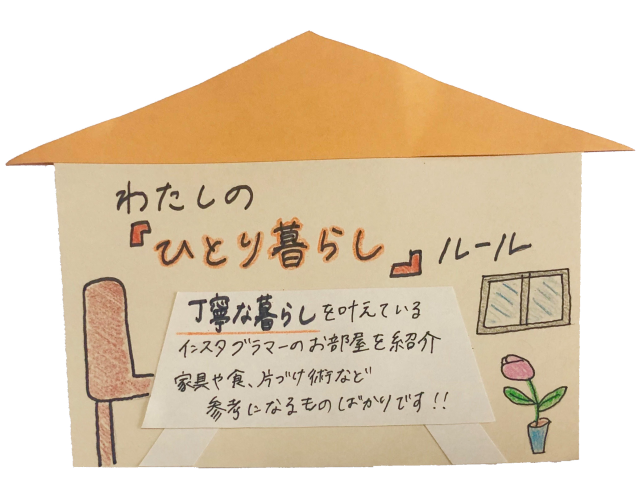 わたしの
『ひとり暮らし』ルール
丁寧な暮らしを叶えている
インスタグラマーのお部屋を紹介
家具や食、片づけ術など
参考になるものばかりです!!